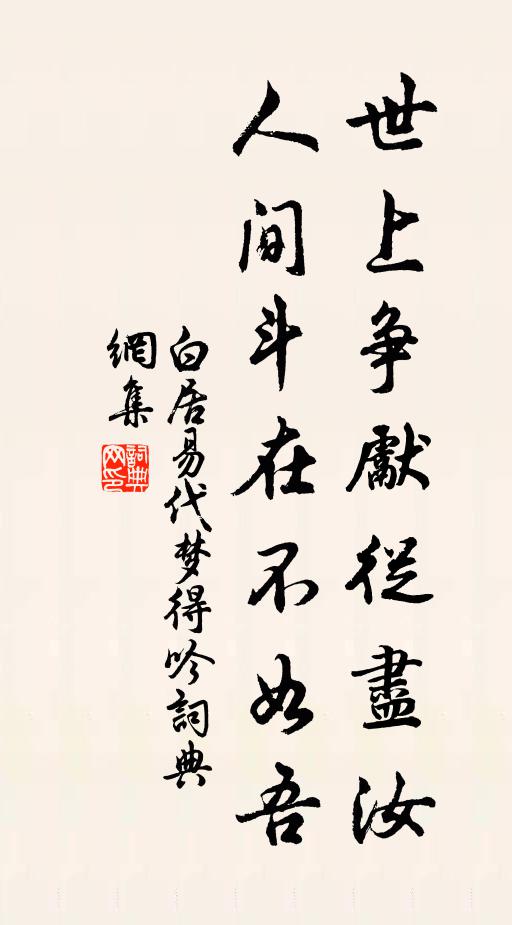 世上争獻從盡汝
人间斗在不如吾
白居易代梦得吟詞典
網集
詞典
网印